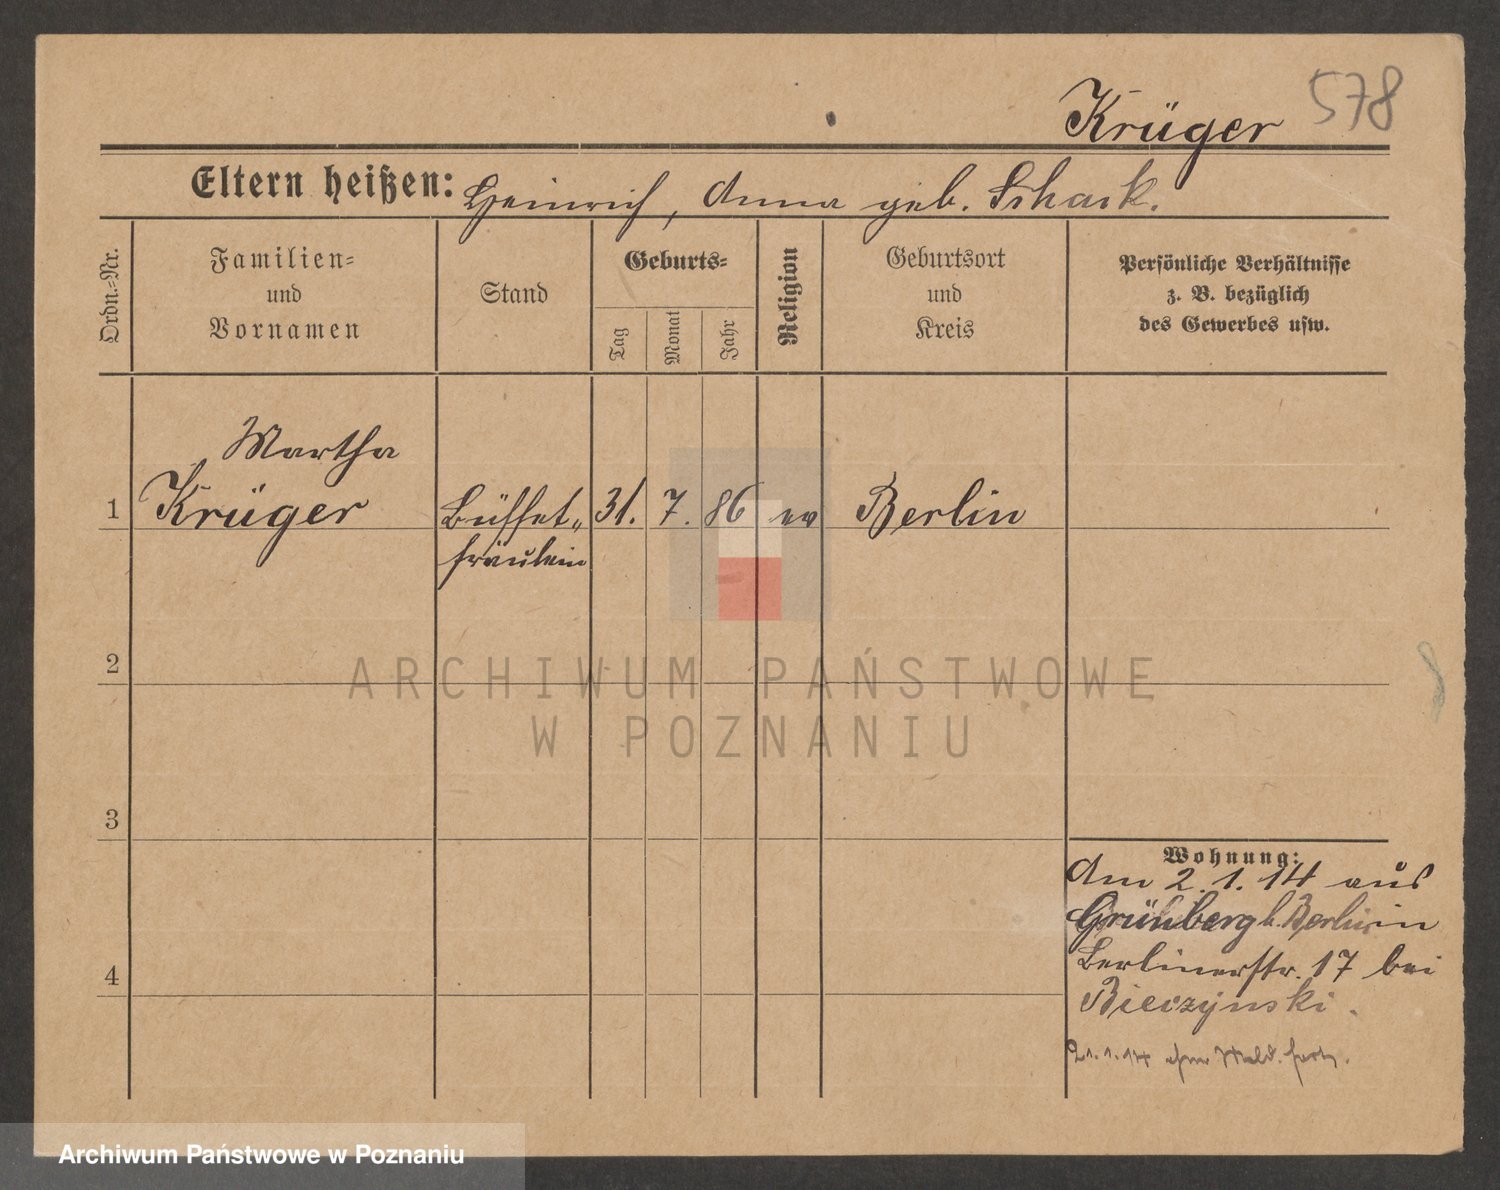 Krüger 578
Eltern heißen: Heinrich, Anna geb. Schack.
Ordn.=Nr.
Familien=
und
Vornamen
Stand
Geburts=
Tag
Monat
Jahr
Religion
Geburtsort
und
Kreis
Persönliche Verhältnisse
z. B. bezüglich
des Gewerbes usw.
Martha
1 Krüger Büffet„ 31. 7. 86 ev Berlin
fräulein
2
ARCHIWUM PAŃSTWOWE
W POZNANIU
3
4
Wohnung:
Am 2.1.14 aus
Grünberg b. Berlin in
Berlinerstr. 17 bei
Bieczynski.
21.1.14 ohne Meld. fort.
Archiwum Państwowe w Poznaniu